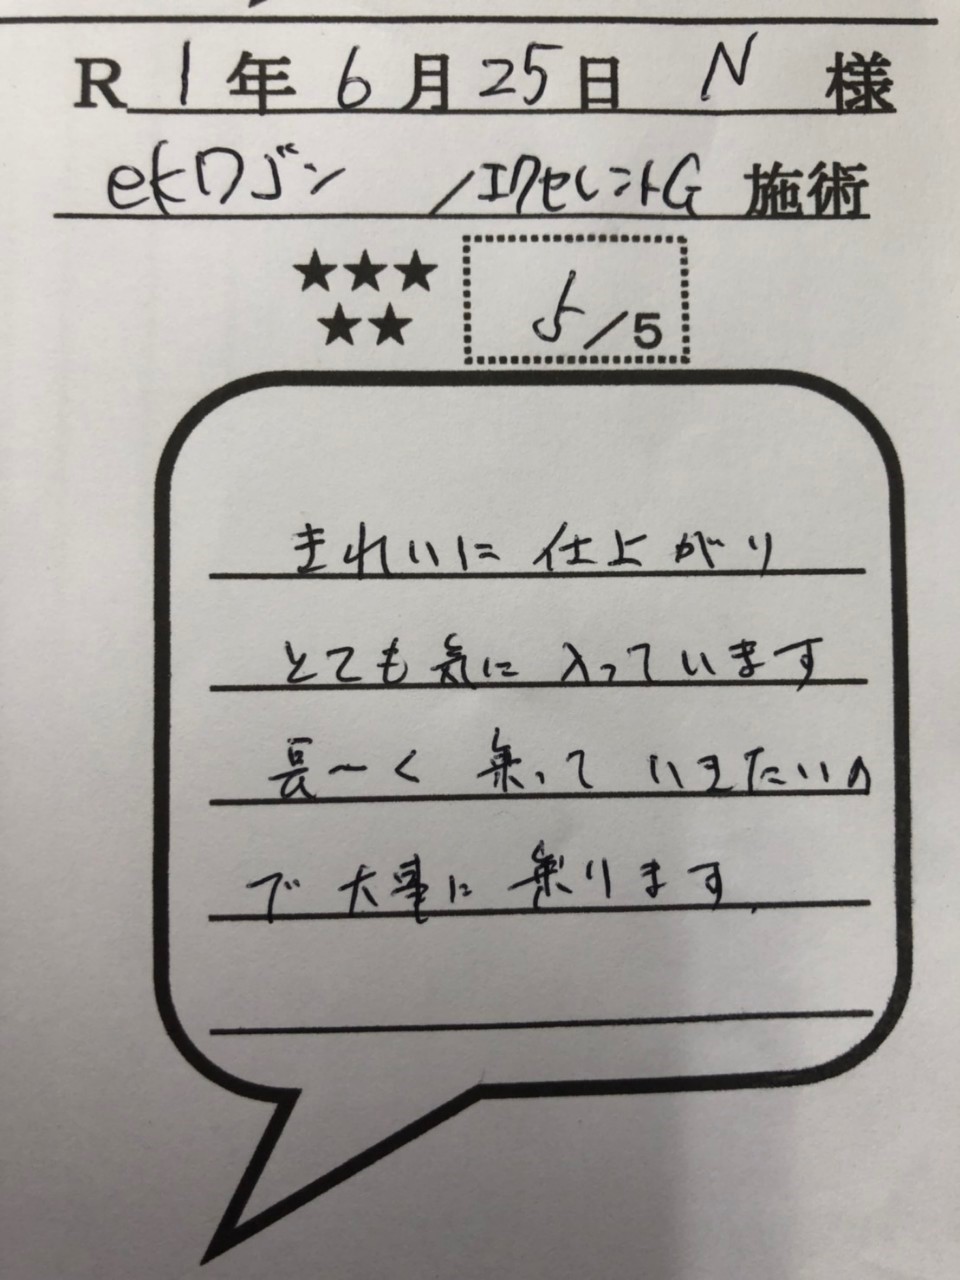 R 1年 6月 25日 N 様
ekワゴン /エクセレントG 施術
★★★
★★
5/5
きれいに 仕上がり
とても 気に 入っています
長〜く 乗って いきたいの
で 大事に 乗ります.